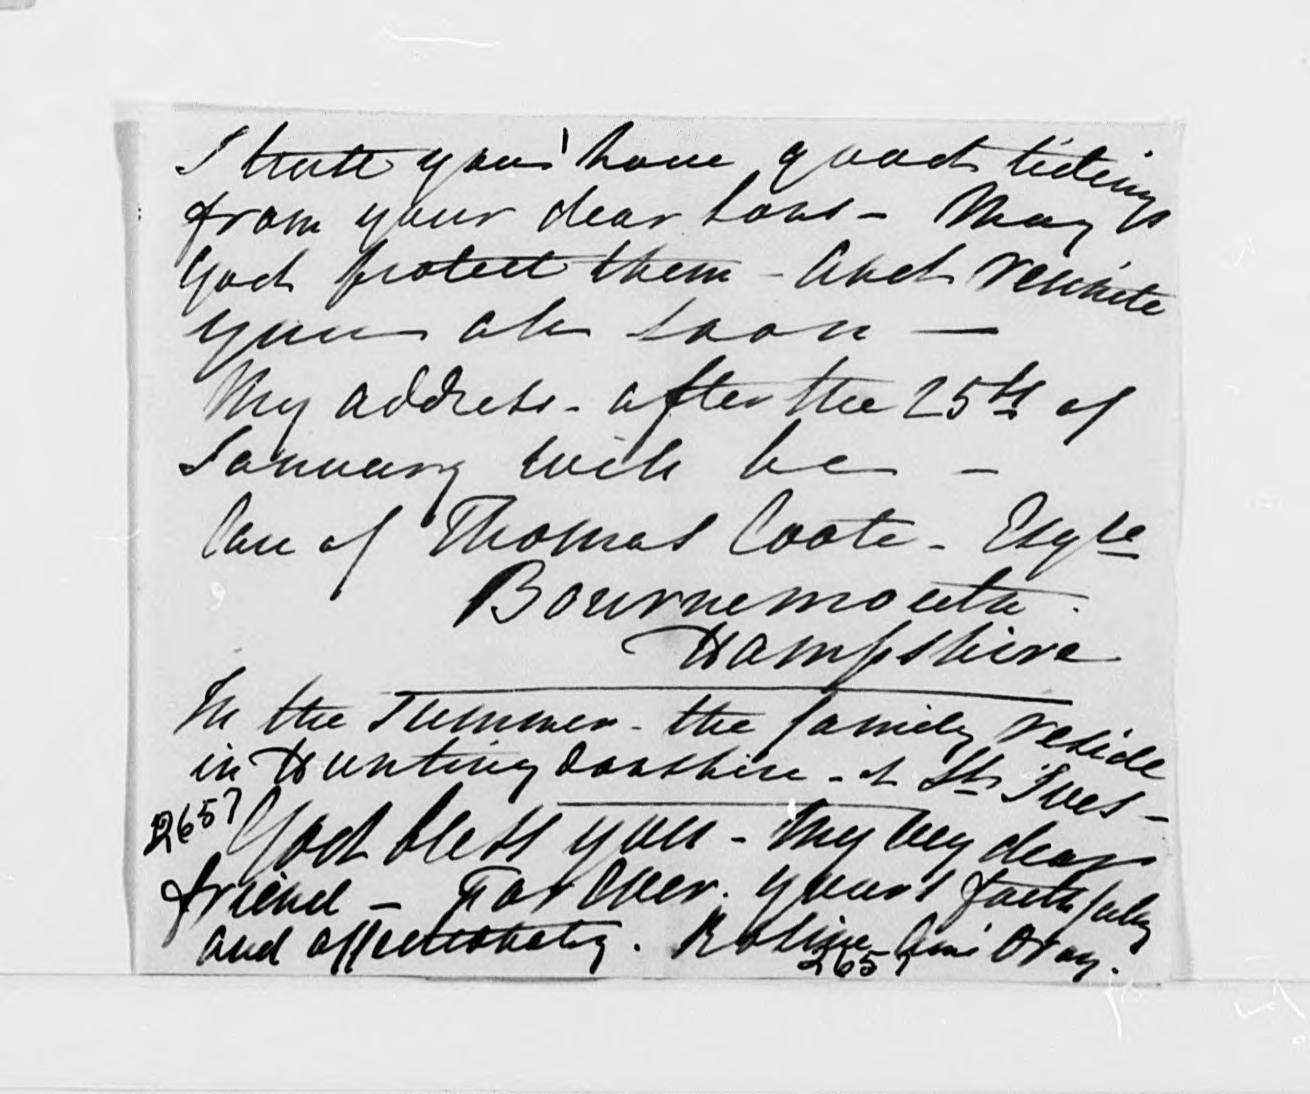 I trust you have good tidings
from your dear sons - May
God protect them - and reunite
you all soon -
My address - after the 25th of
January will be -
Care of Thomas Coote - Esqre
Bournemouth.
Hampshire
In the summer - the family reside
in Huntingdonshire - at St Ives -
2657
God bless you - My very dear
friend - For Ever. yours faithfully
and affectionately. Ami Bray.
2657